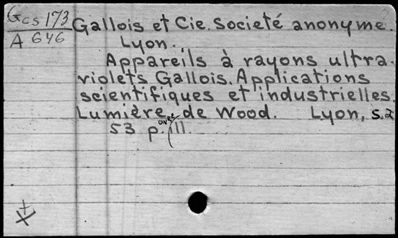 Gcs 173
A 646
Gallois et Cie. Societé anonyme.
Lyon.
Appareils à rayons ultra-
violets Gallois. Applications
scientifiques et industrielles.
Lumière de Wood. Lyon, s.d
53 p. ill